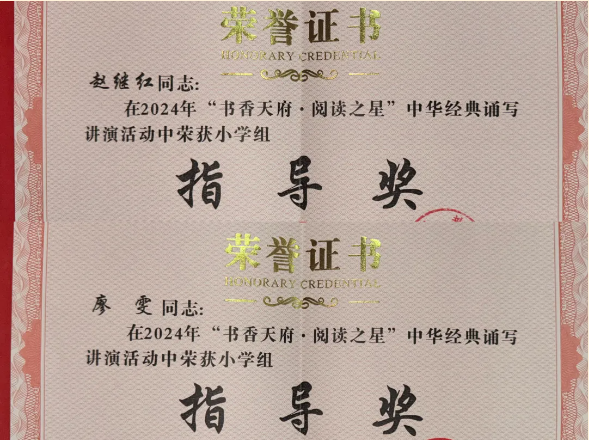 荣誉证书
HONORARY CREDENTIAL
赵继红同志:
在2024年“书香天府·阅读之星”中华经典诵写
讲演活动中荣获小学组
指导奖
荣誉证书
HONORARY CREDENTIAL
廖雯同志:
在2024年“书香天府·阅读之星”中华经典诵写
讲演活动中荣获小学组
指导奖